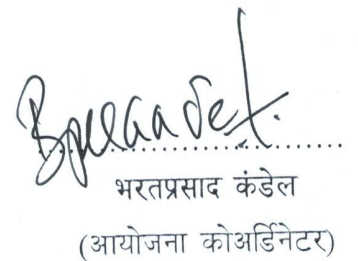 भरतप्रसाद कंडेल
(आयोजना कोअर्डिनेटर)